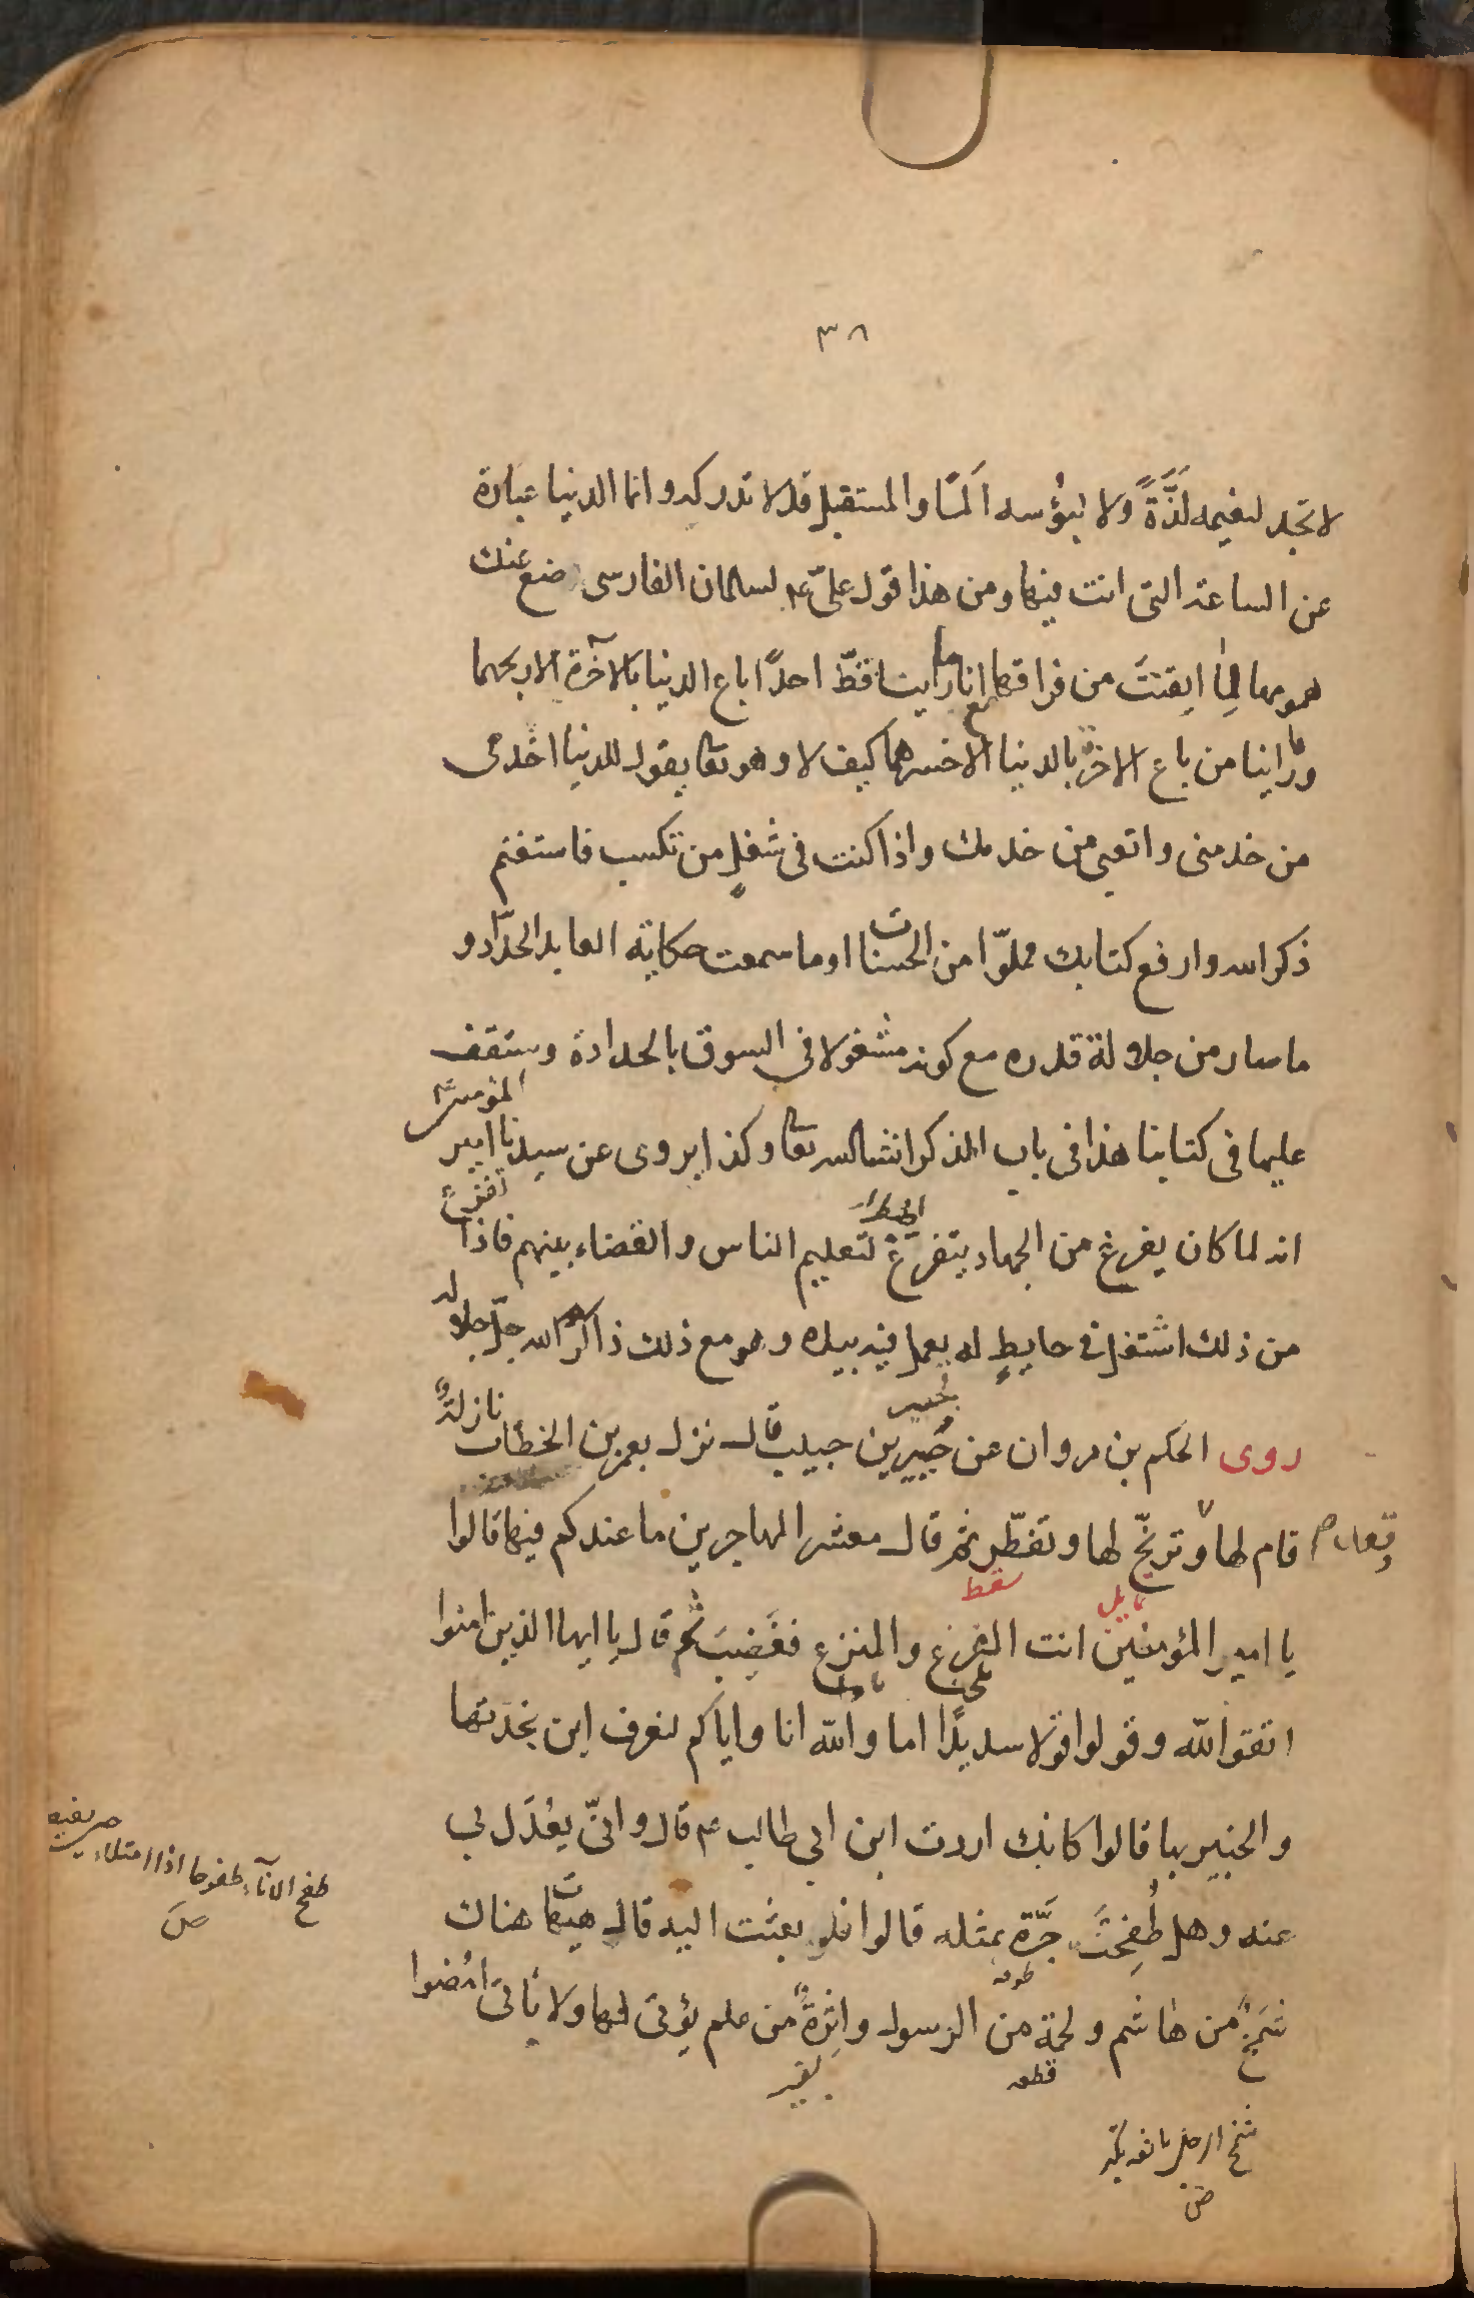 ٣٨
لا تجد لنعيمه لَذَّةً ولا لبؤسه اَلمًا والمستقبل قد لا تدركه وانما الدنيا عبارة
عن الساعة التى انت فيها ومن هذا قول علىّ ع لسلمان الفارسى ضع عنك
همومها لِما ايقنتَ من فراقها انا ما راينا قطّ احدًا باع الدنيا بالآخرة الا ربحهما
وما راينا من باع الاخرة بالدنيا الا خسرهما كيف لا وهو تعا يقول للدنيا اخدمى
من خدمنى واتعبى من خدمك واذا كنت فى شغلٍ من تكسب فاستغنم
ذكر الله وارفع كتابك مملوّا من الحسنات اوما سمعت حكاية العابد الحدّاد و
ما صار من جلالة قدره مع كونه مشغولا فى السوق بالحدادة وستقف
عليها فى كتابنا هذا فى باب الذكر انشاالله تعا وكذا يروى عن سيدنا امير المؤمنين
انه لما كان يفرغ من الجهاد يتفرغ لتعليم الناس والقضاء بينهم فاذا تفرغ
من ذلك اشتغل فى حايطٍ له يعمل فيه بيده وهو مع ذلك ذاكر الله جلّ جلاله
روى الحكم بن مروان عن جُبير بن حبيب قال نزل بعمر بن الخطاب نازلةٌ
قام لها وترنّح لها وتقطّر ثم قال معشر المهاجرين ما عندكم فيها قالوا
سقط
يا امير المؤمنين انت المفزع والمنزع فغَضِبَ ثم قال يا ايها الذين امنوا
اتقوا الله وقولوا قولا سديدًا اما والله انا واياكم لنعرف اين بجدتها
والخبير بها قالوا كانك اردت ابن ابي طالب ع قال وانّى يعُدَل بي
عنه وهل طُفِحَتْ جَرَّة بمثله قالوا فلو بعثت اليه قال هيهات هناك
شَمَخٌ من هاشم ولحمة من الرسول واثرةٌ من علم يؤتى لها ولا ياتى امْضوا
قطعه
طفح الانآء طفوحا اذا امتلاء حتى يفيض
ص
شمخ الرجل بانفه تكبر
ص